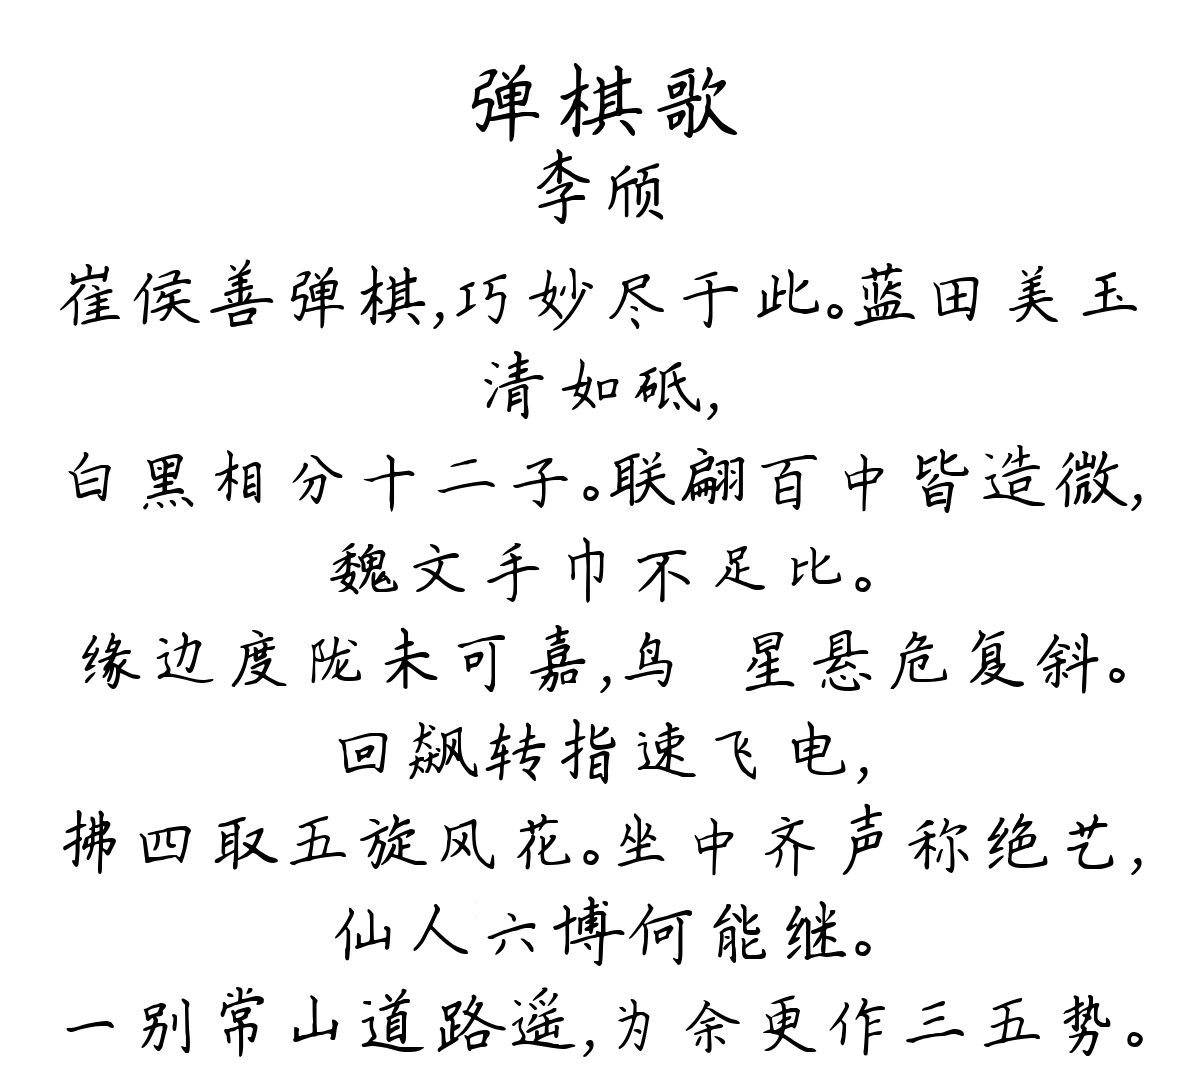 弹棋歌
李颀
崔侯善弹棋,巧妙尽于此。蓝田美玉
清如砥,
白黑相分十二子。联翩百中皆造微,
魏文手巾不足比。
缘边度陇未可嘉,鸟 星悬危复斜。
回飙转指速飞电,
拂四取五旋风花。坐中齐声称绝艺,
仙人六博何能继。
一别常山道路遥,为余更作三五势。